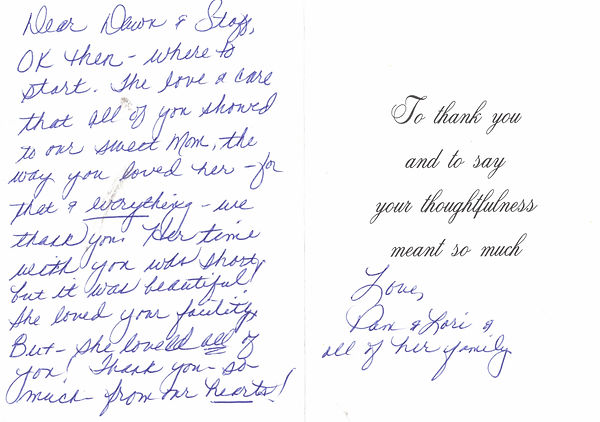 Dear Dawn & Staff,
OK then - where to
start. The love & care
that all of you showed
to our sweet Mom, the
way you loved her - for
that & everything - we
thank you. Her time
with you was short,
but it was beautiful!
She loved your facility,
But - she loved all of
you! Thank you - so
much - from our hearts!
To thank you
and to say
your thoughtfulness
meant so much
Love,
Pam & Lori &
all of her family